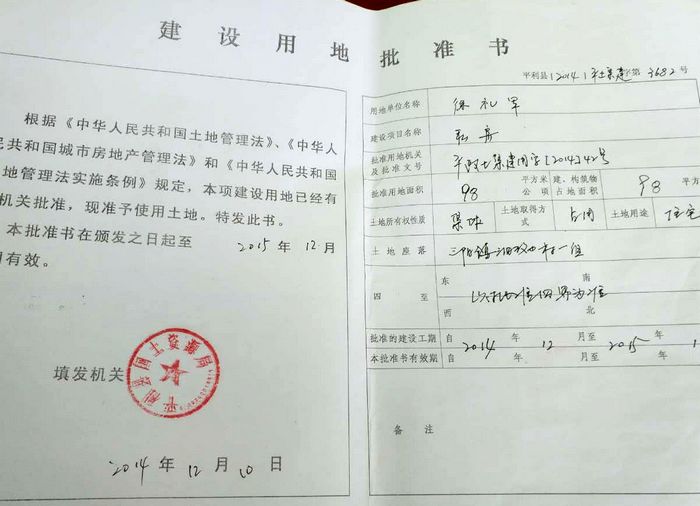 建设用地批准书
根据《中华人民共和国土地管理法》、《中华人
民共和国城市房地产管理法》和《中华人民共和国
地管理法实施条例》规定，本项建设用地已经有
机关批准，现准予使用土地。特发此书。
本批准书在颁发之日起至 2015 年 12 月
有效。
填发机关
平利县国土资源局
2014 年 12 月 10 日
平利县(2014)平土集建字第3682号
用地单位名称 徐礼军
建设项目名称
批准用地机关及批准文号 平政土集建用字[2014]42号
批准用地面积 98 平方米 公项 建、构筑物占地面积 98 平方
土地所有权性质 集体 土地取得方式 占用 土地用途 住宅
土地座落 三阳镇 村一组
四至 东 南 西 北
以 四界为准
批准的建设工期 自 2014 年 12 月至 2015 年 1
本批准书有效期 自 年 月至 年
备注